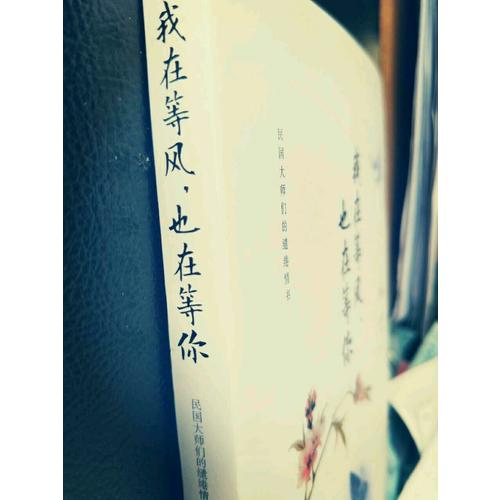 我在等风，也在等你
民国大师们的缱绻情
民国大师们的缱绻情书
我在等风，
也在等你